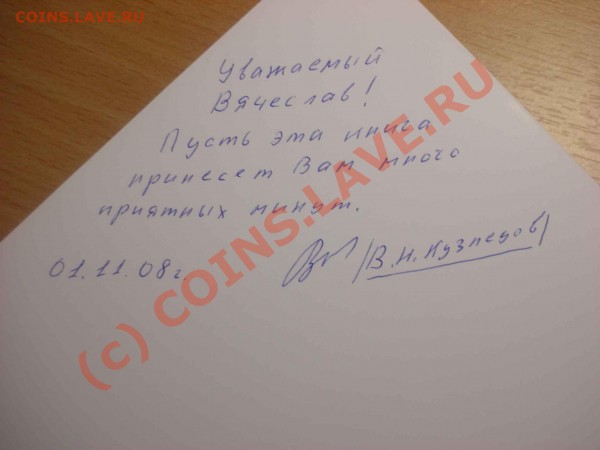 COINS.LAVE.RU
Уважаемый
Вячеслав!
Пусть эта книга
принесет Вам много
приятных минут.
01.11.08 г.
/В.Н. Кузнецов/
(c) COINS.LAVE.RU